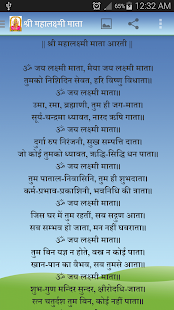 12:32 AM
श्री महालक्ष्मी माता
|| श्री महालक्ष्मी माता आरती ||
ॐ जय लक्ष्मी माता, मैया जय लक्ष्मी माता।
तुमको निशिदिन सेवत, हरि विष्णु विधाता॥
ॐ जय लक्ष्मी माता॥
उमा, रमा, ब्रह्माणी, तुम ही जग-माता।
सूर्य-चन्द्रमा ध्यावत, नारद ऋषि गाता॥
ॐ जय लक्ष्मी माता॥
दुर्गा रुप निरंजनी, सुख सम्पत्ति दाता।
जो कोई तुमको ध्यावत, ऋद्धि-सिद्धि धन पाता॥
ॐ जय लक्ष्मी माता॥
तुम पाताल-निवासिनि, तुम ही शुभदाता।
कर्म-प्रभाव-प्रकाशिनी, भवनिधि की त्राता॥
ॐ जय लक्ष्मी माता॥
जिस घर में तुम रहतीं, सब सद्गुण आता।
सब सम्भव हो जाता, मन नहीं घबराता॥
ॐ जय लक्ष्मी माता॥
तुम बिन यज्ञ न होते, वस्त्र न कोई पाता।
खान-पान का वैभव, सब तुमसे आता॥
ॐ जय लक्ष्मी माता॥
शुभ-गुण मन्दिर सुन्दर, क्षीरोदधि-जाता।
रत्न चतुर्दश तुम बिन, कोई नहीं पाता॥